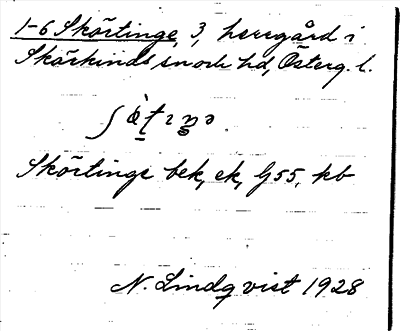 1-6 Skörtinge, 3, herrgård i
Skärkinds sn och hd, Österg. l.
Skörtinge bek, ek, G55, kb
N. Lindqvist 1928